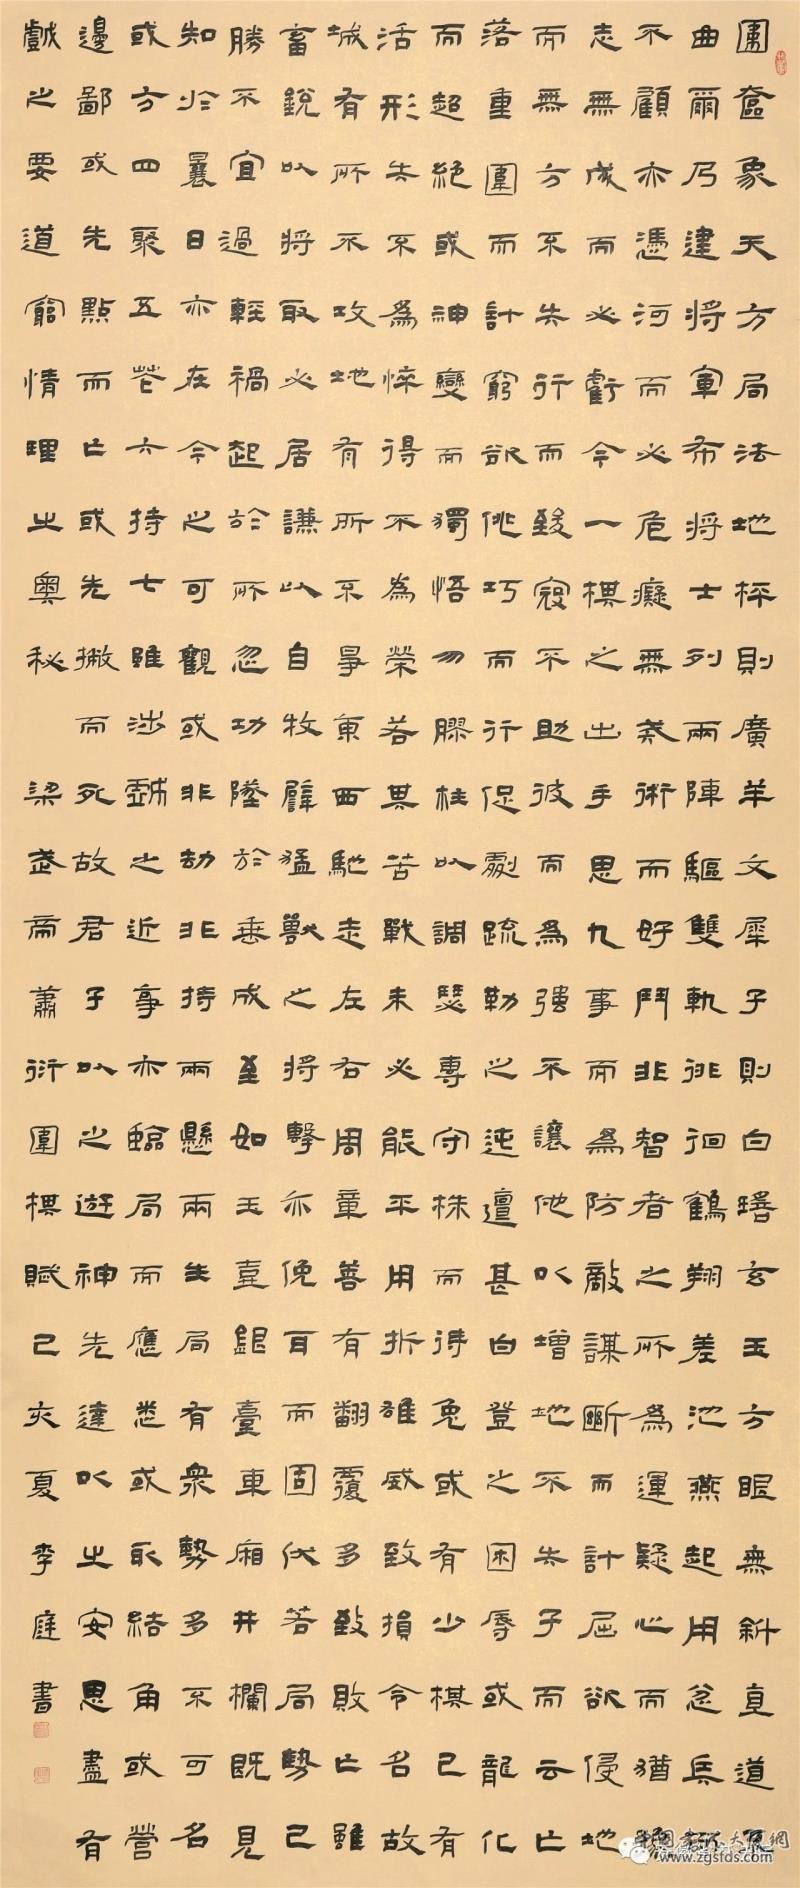 圍奩象天方局法地枰則廣羊文犀子則白瑤玄玉方眼無斜直道不
曲爾乃建將軍布將士列兩陣驅雙軌徘徊鶴翔差池燕起用忿兵而
不顧亦憑河而必危癡無戒術而好鬥非智者之所為運疑心而猶豫
志無成而必虧今一棋之出手思九事而為防敵謀斷而計屈欲侵地
而無方不失行而致寇不助彼而為強不讓他以增地不失子而云亡
落重圍而計窮欲佻巧而行促劇疏勒之迍邅甚白登之困辱或龍化
而超絕或神變而獨悟勿膠柱以調瑟專守株而待兔或有少棋已有
活形失不為悴得不為榮若其苦戰未必能平用折雄威致損令名故
城有所不攻地有所不爭東西馳走左右周章善有翻覆多致敗亡雖
畜銳以將取必居謙以自牧譬猛獸之將擊亦俛耳而固伏若局勢已
勝不宜過輕禍起於所忽功墜於垂成至如玉壺銀臺車廂井欄既見
知於曩日亦在今之可觀或非劫非持兩懸兩生局有眾勢多不可名
或方四聚五花六持七雖涉戲之近事亦臨局而應悉或取結角或營
邊鄙或先點而亡或先撇而死故君子以之遊神先達以之安思盡有
戲之要道窮情理之奧秘 梁武帝蕭衍圍棋賦己亥夏李庭書
www.zgsfds.com